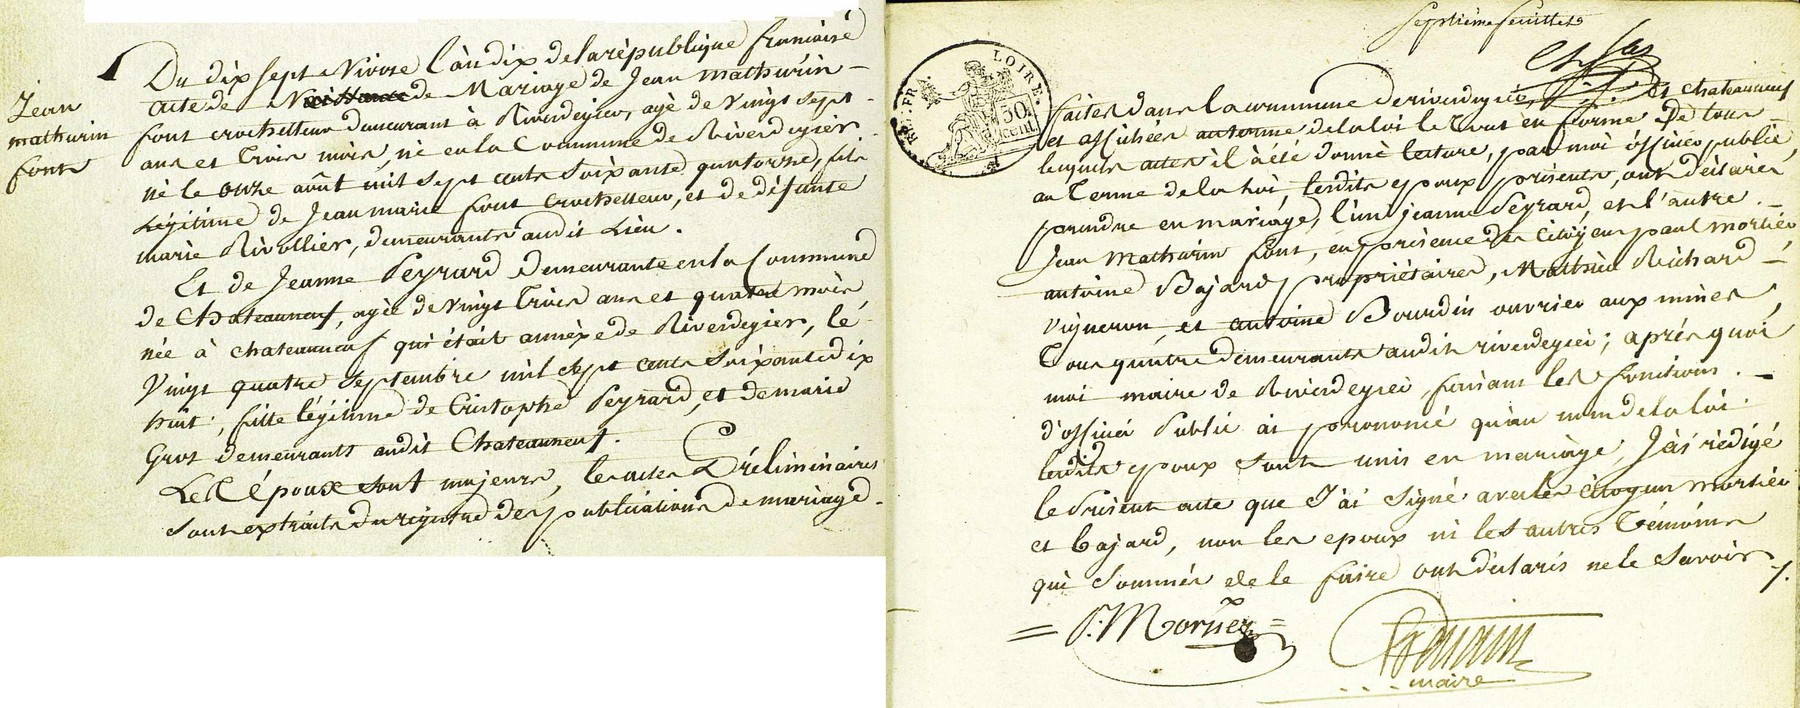 Jean
mathurin
font
Du dix sept Nivose l'àn dix de la république francaise
acte de Naissance de Mariage de Jean mathurin
font crochetteur demeurant à Riverdegier, agé de vingt sept
ans et Trois mois, né en la Commune de Riverdegier
né le onze août mil sept cents soixante quatorze, fils
Légitime de Jean marie font crochetteur, et de défunte
marie Rivollier, demeurants audit Lieu.
Et de Jeanne Peyrard demeurante en la Commune
de Chateauneuf, agée de vingt Trois ans et quatre mois
née à chateauneuf qui était annéxe de Riverdegier, lé
Vingt quatre septembre mil sept cents soixante dix
huit; fille légitime de Cristophe Peyrard, et de marie
Grot demeurants audit Chateauneuf.
Les époux sont majeurs, les actes Préliminaires
sont extraits du régistre des publications de mariage
Septième feuillet
RE. FRA. LOIRE.
50 cent.
faites dans la commune de riverdegier, et chateauneuf
et affichées au terme de la loi le Tout en forme De tous
lesquels actes il à été donné lecture, par moi officier public
au Terme de la loi lesdits epoux présents, ont déclarés
prendre en mariage, l'un jeanne Peyrard, et l'autre
Jean Mathurin font, en présence des Citoyens paul mortier
antoine Bajard propriétaires, Mathieu Richard
vigneron, et antoine Bourdin ouvrier aux mines,
Tous quatre demeurants audit riverdegier; après quoi
moi maire de Riverdegier faisant les fonctions
d'officier Public ai prononcé qu'au nom de la loi
lesdits epoux sont unis en mariage, J'ai rédigé
le Présent acte que J'ai signé avec les citoyens mortier
et bajard, non les epoux ni les autres Témoins
qui sommés de le faire ont déclarés ne le savoir
P. Mortier
maire